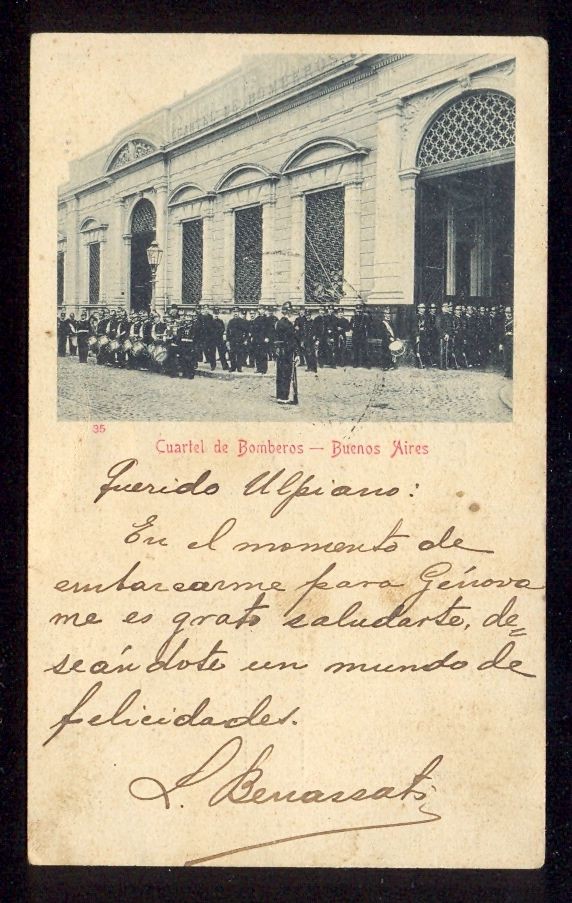 CUARTEL DE BOMBEROS
35
Cuartel de Bomberos — Buenos Aires
Querido Ulpiano:
En el momento de
embarcarme para Génova
me es grato saludarte, de=
seándote un mundo de
felicidades.
L.